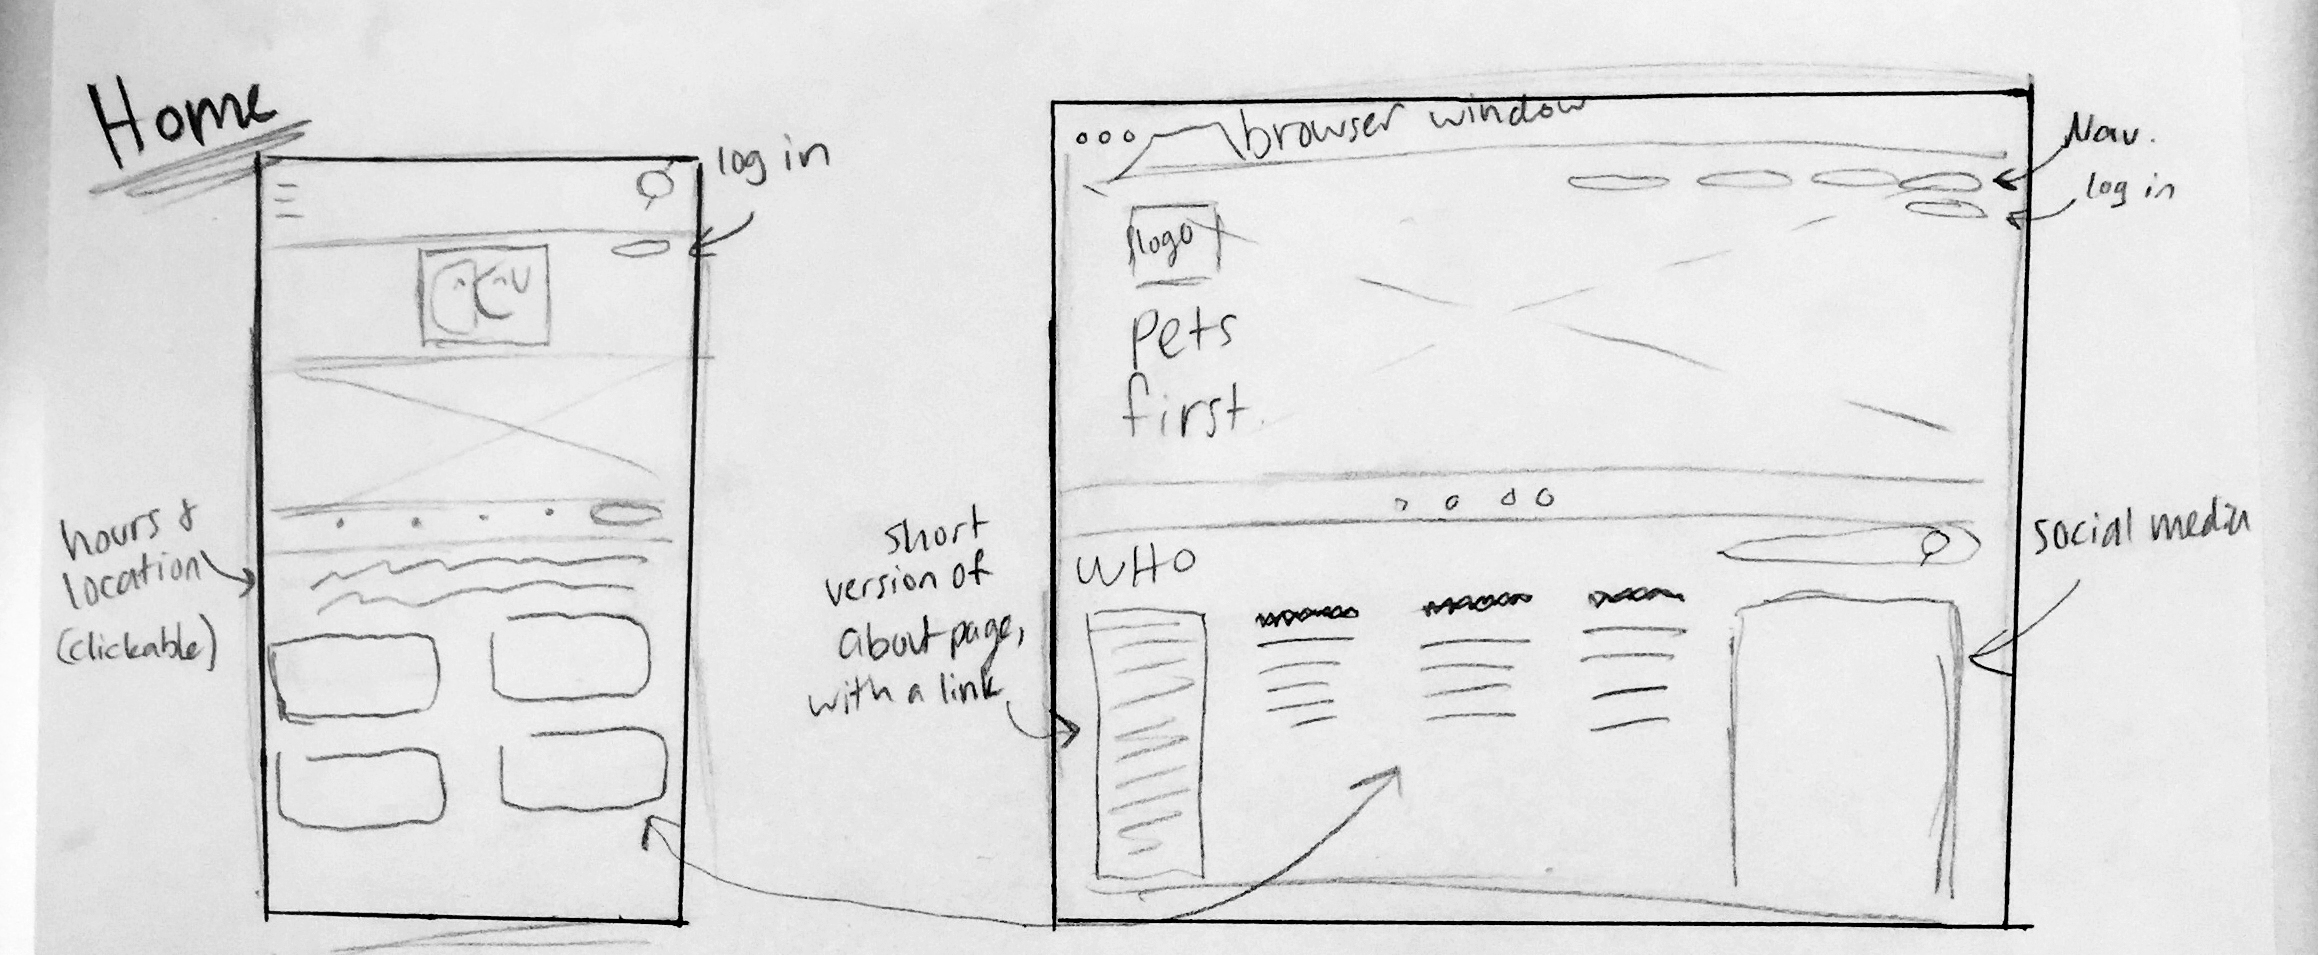 Home
log in
hours &
location
(clickable)
browser window
Nav.
log in
logo
pets
first.
WHO
short
version of
about page,
with a link
social media